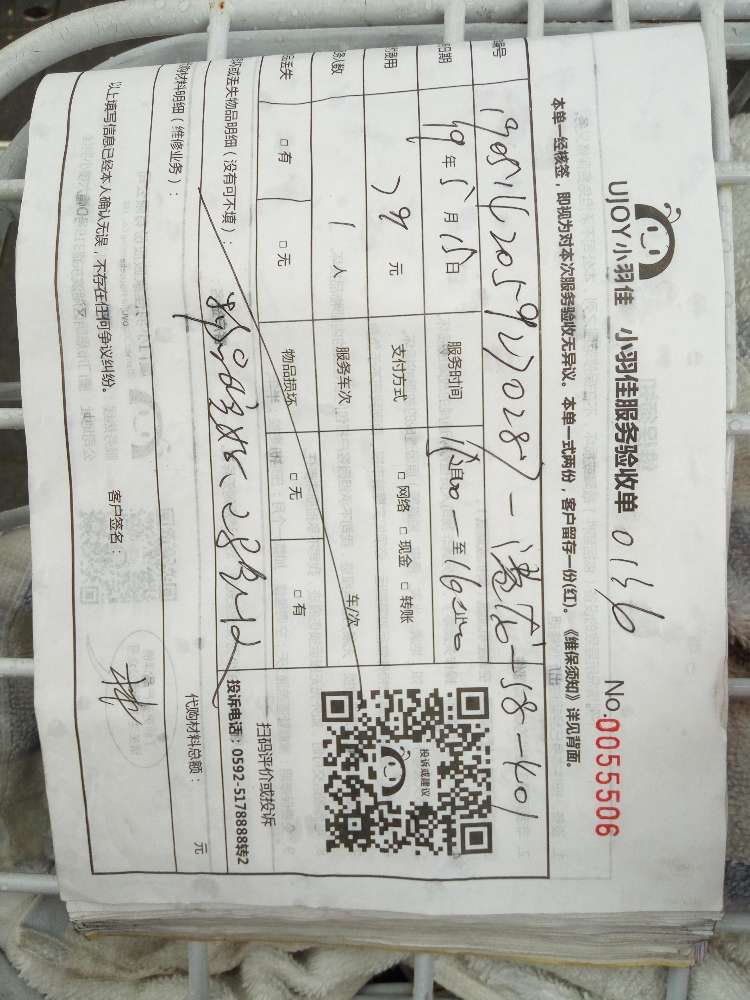 UJOY小羽佳 小羽佳服务验收单 0136
No:0055506
本单一经核签，即视为对本次服务验收无异议。本单一式两份，客户留存一份(红)。《维保须知》详见背面。
编号
-58-401
日期 19年5月15日 服务时间 至
费用 元 支付方式 □网络 □现金 □转账
人数 1人 服务车次 车/次
丢失 □有 □无 物品损坏 □无 □有
坏或丢失物品明细（没有可不填）：
购材料明细（维修业务）：
代购材料总额： 元
投诉或建议
扫码评价或投诉
投诉电话：0592-5178888转2
以上填写信息已经本人确认无误，不存在任何争议纠纷。 客户签名：